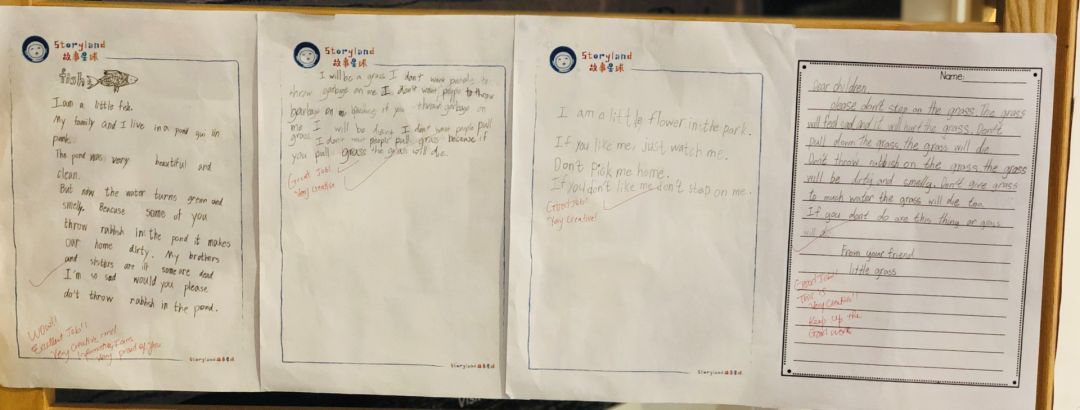 Storyland
故事星球
fish
I am a little fish.
My family and I live in a pond qui lin
park.
The pond was very beautiful and
clean.
But now the water turns green and
smelly. Bencuse some of you
throw rabbish in the pond it makes
our home dirty. My brothers
and sisters are ill some are dead
I'm so sad would you please
do't throw rabbish in the pond.
Wow!!
Excellent Job!!
Very Creative and
Informative, I am
Very proud of You
Storyland 故事星球
Storyland
故事星球
I will be a grass I don't want people to
throw garbage on me I don't want people to throw
garbage on me because if you throw garbage on
me I will be dirty I don't want people pull
grass I don't want people pull grass because if
you pull grass the grass will die.
Great Job!
Very Creative
Storyland 故事星球
Storyland
故事星球
I am a little flower in the park.
If you like me, just watch me.
Don't Pick me home.
If you don't like me don't step on me.
Good Job!
Very Creative!
Storyland 故事星球
Name:
Dear children,
please don't step on the grass. The grass
will feel sad and it will hurt the grass. Don't
pull down the grass, the grass will die
Don't throw rubbish on the grass the grass
will be dirty and smelly. Don't give grass
to much water the grass will die too.
If you dont do are this thing or grass
will
From your friend
little grass
Good Job!!
This is
Very Creative!!
Keep up the
Good work